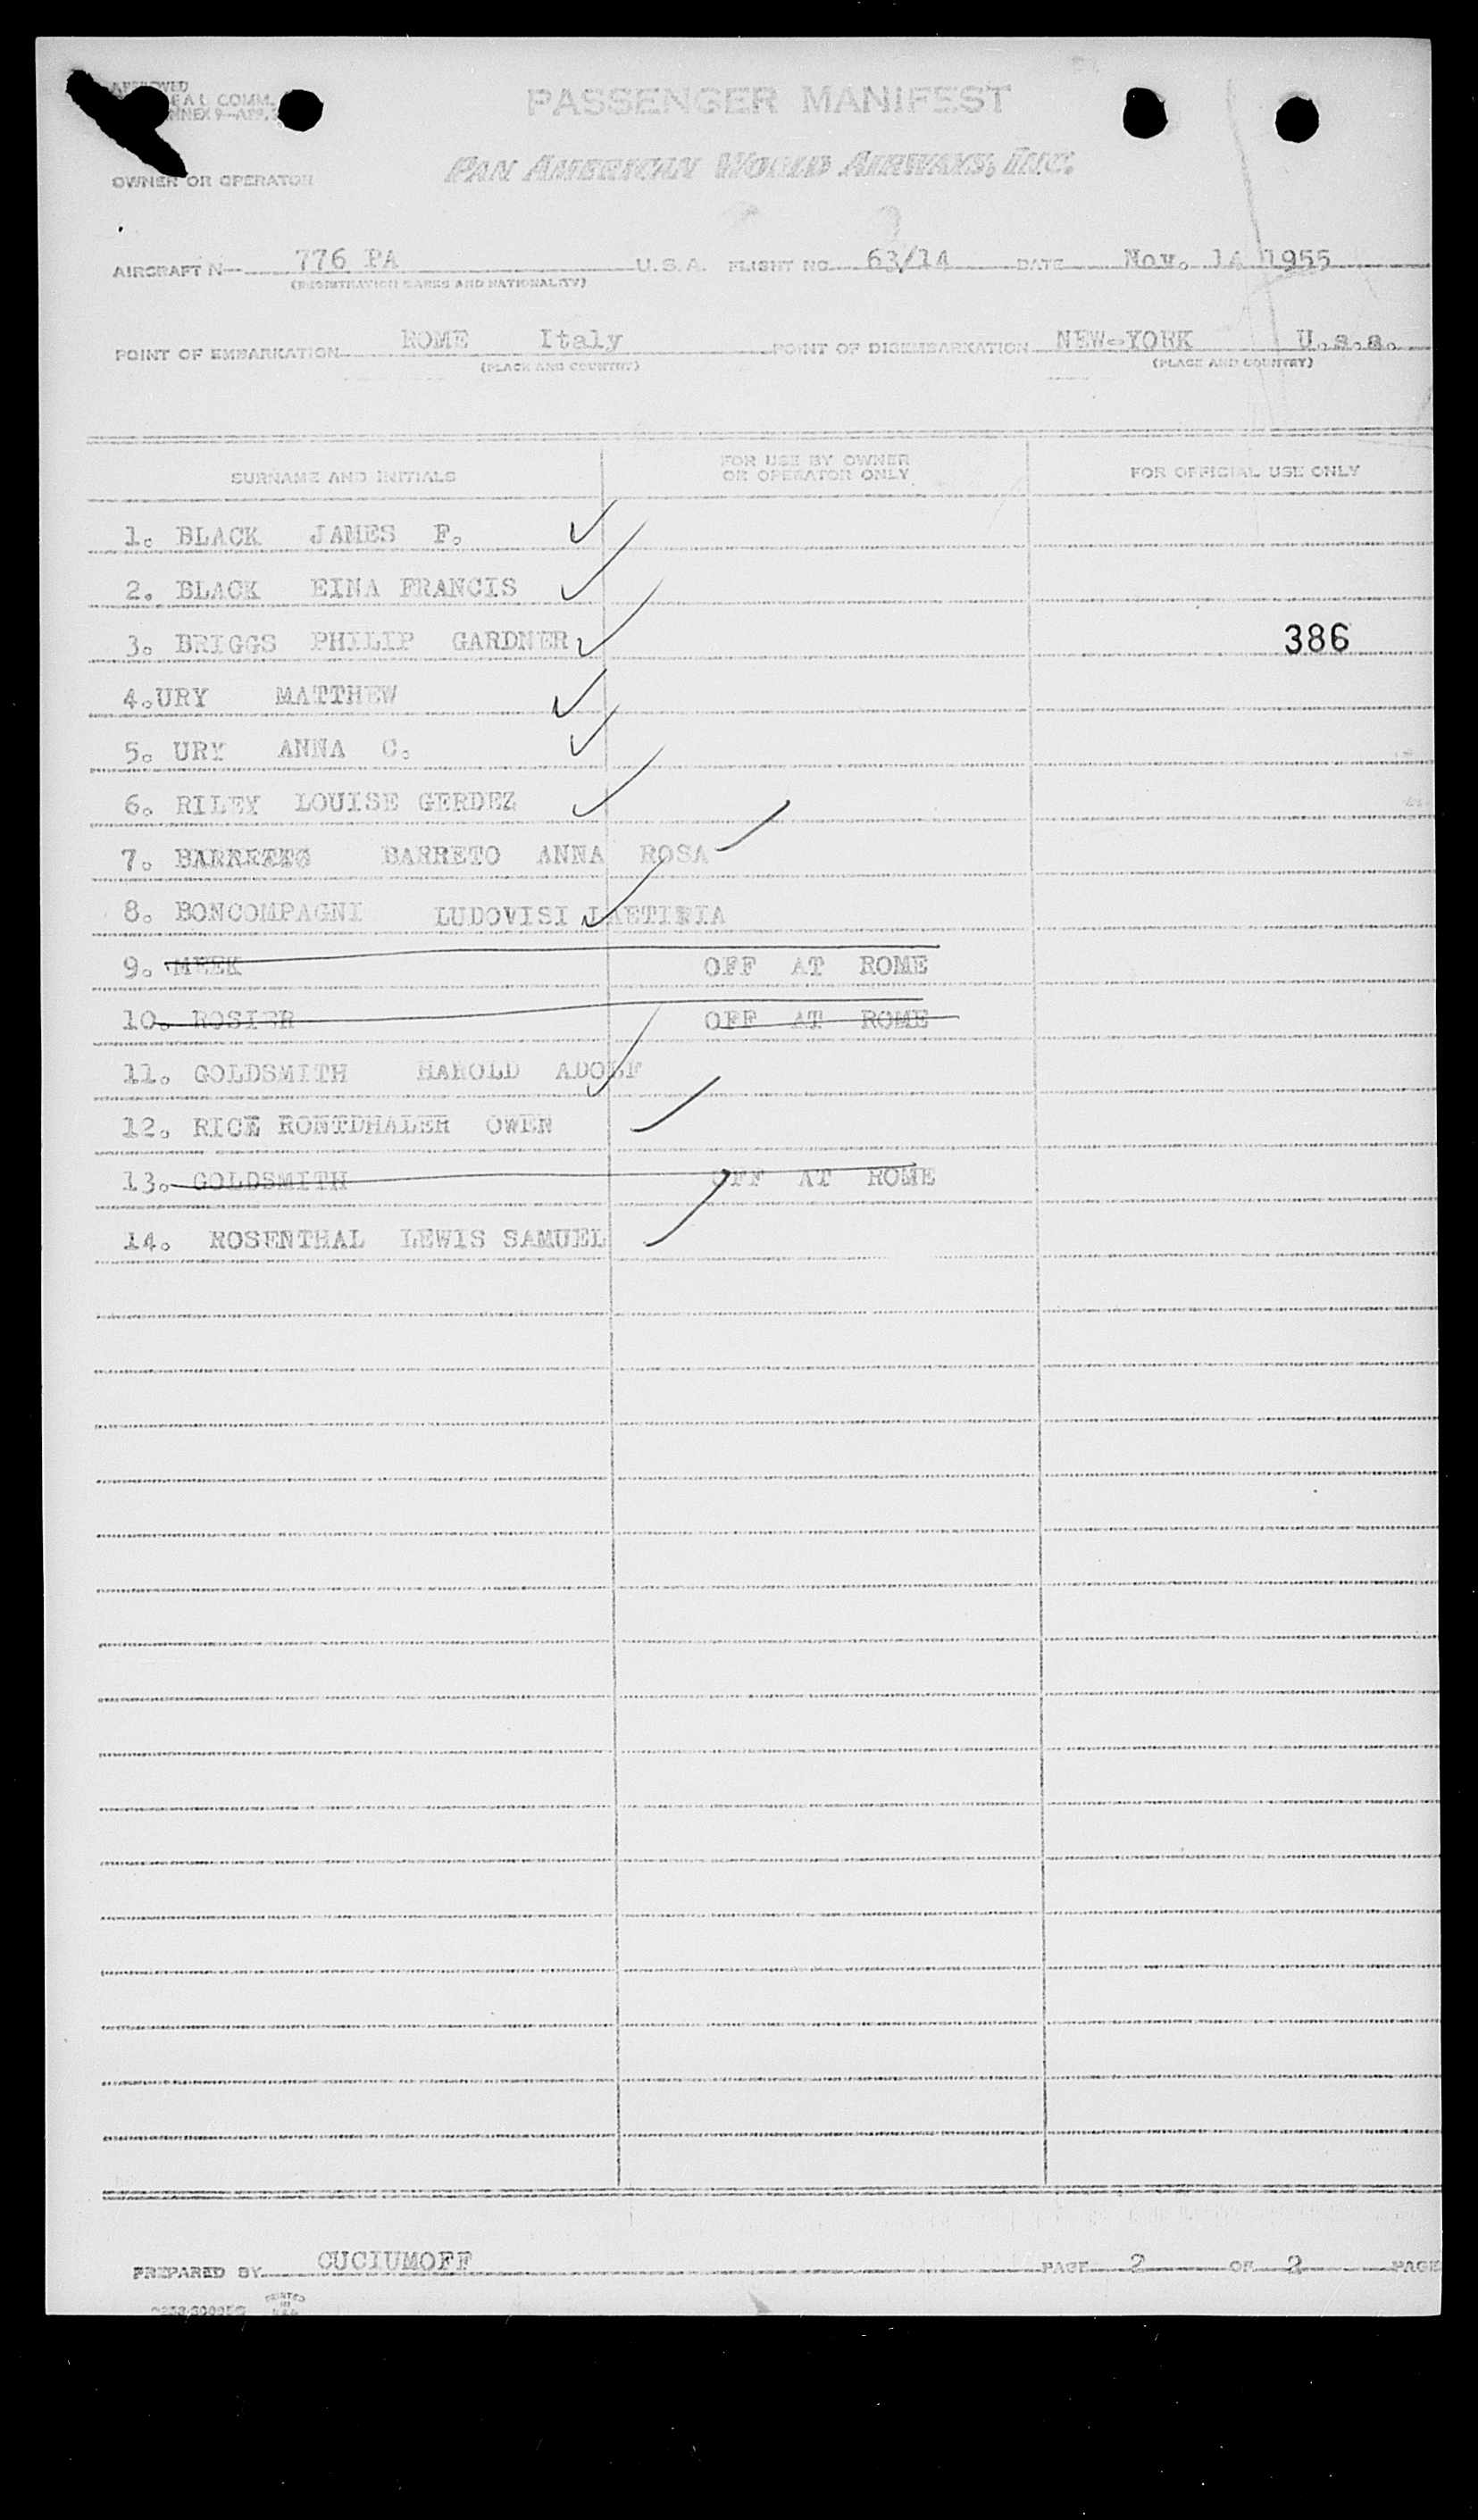 APPROVED
COMM.
ANNEX 9—APP.
PASSENGER MANIFEST
OWNER OR OPERATOR PAN AMERICAN WORLD AIRWAYS, INC.
AIRCRAFT N— 776 PA U.S.A. FLIGHT NO. 63/14 DATE Nov. 14 1955
(REGISTRATION MARKS AND NATIONALITY)
POINT OF EMBARKATION ROME Italy POINT OF DISEMBARKATION NEW-YORK U.s.a.
(PLACE AND COUNTRY) (PLACE AND COUNTRY)
SURNAME AND INITIALS FOR USE BY OWNER OR OPERATOR ONLY FOR OFFICIAL USE ONLY
1. BLACK JAMES F.
2. BLACK EINA FRANCIS
3. BRIGGS PHILIP GARDNER 386
4.URY MATTHEW
5. URY ANNA C.
6. RILEY LOUISE GERDEZ
7. BARRETO ANNA ROSA
8. BONCOMPAGNI LUDOVISI
9. MEEK OFF AT ROME
10. ROSIER OFF AT ROME
11. GOLDSMITH HAROLD ADOLF
12. RICE RONTDHALER OWEN
13. GOLDSMITH OFF AT ROME
14. ROSENTHAL LEWIS SAMUEL
PREPARED BY CUCIUMOFF PAGE 2 OF 2 PAGE
PRINTED IN